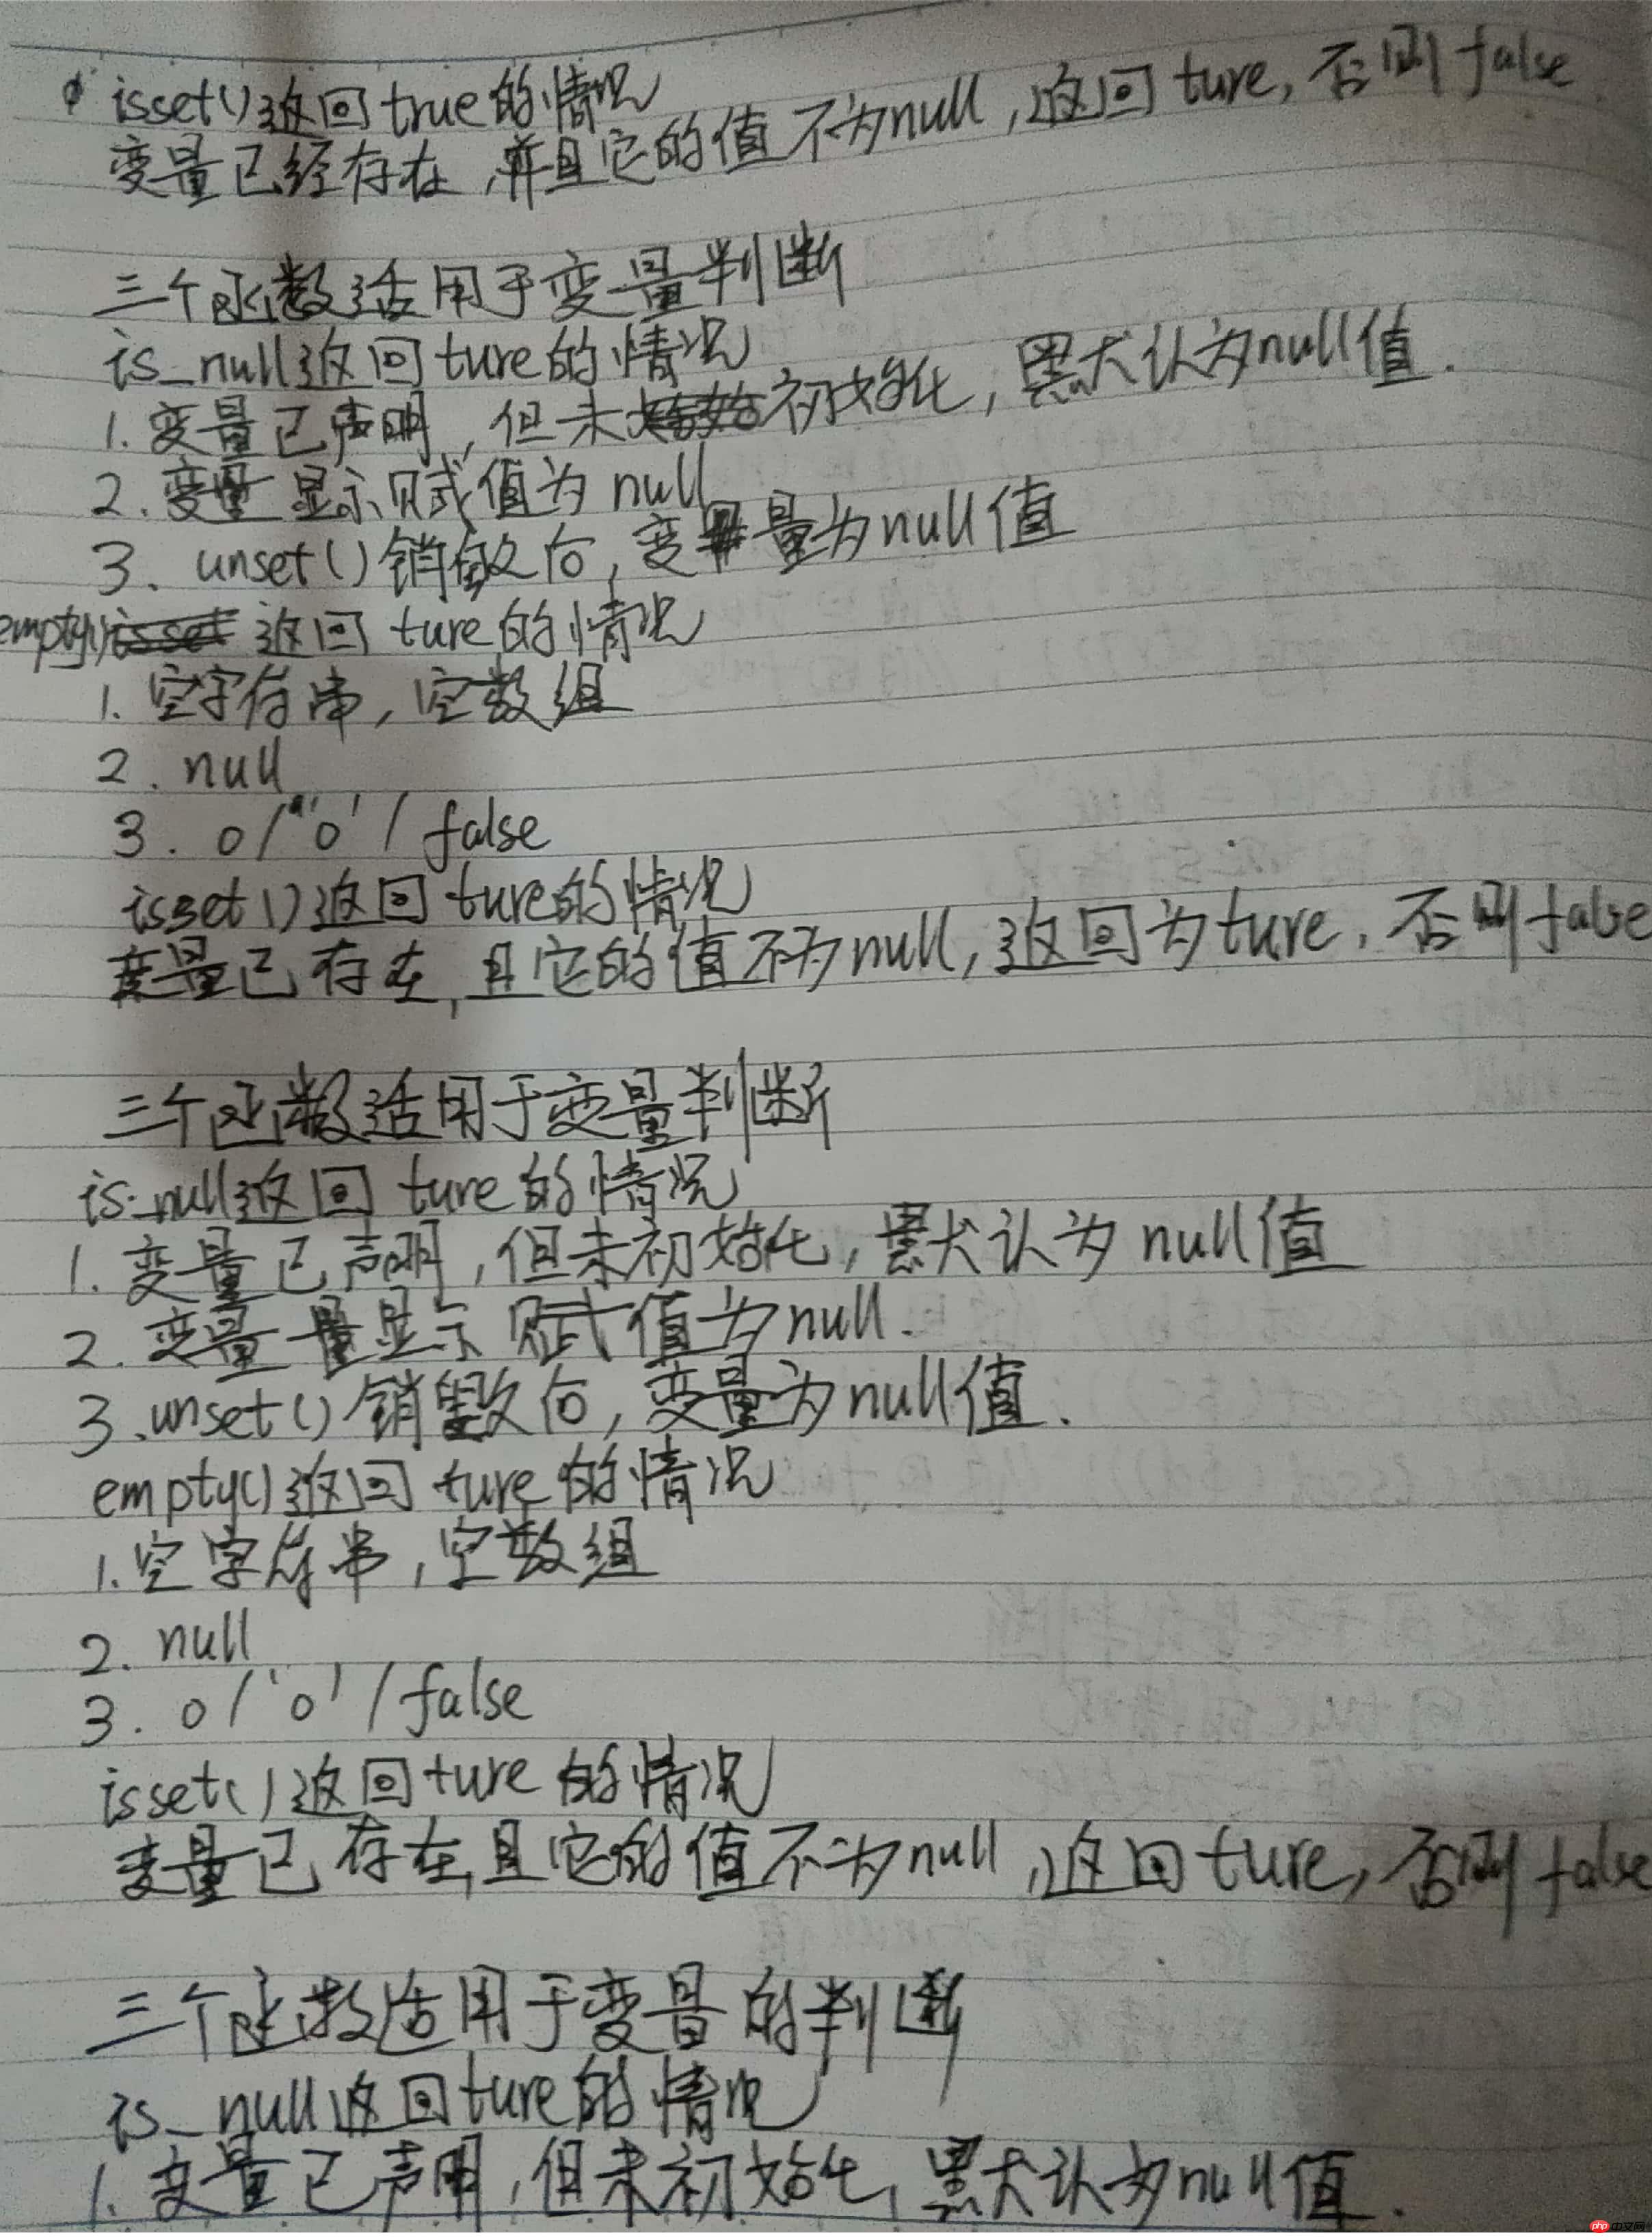 isset()返回true的情况
变量已经存在,并且它的值不为null,返回ture,否则false
三个函数适用于变量判断
is_null返回ture的情况
1.变量已声明,但未初始化,默认为null值.
2.变量显示赋值为null
3.unset()销毁后,变量为null值
empty()返回ture的情况
1.空字符串,空数组
2.null
3.0/'0'/false
isset()返回ture的情况
变量已存在,且它的值不为null,返回为ture,否则false
三个函数适用于变量判断
is_null返回ture的情况
1.变量已声明,但未初始化,默认为null值
2.变量量显示赋值为null.
3.unset()销毁后,变量为null值.
empty()返回ture的情况
1.空字符串,空数组
2.null
3.0/'0'/false
isset()返回ture的情况
变量已存在,且它的值不为null,返回ture,否则false
三个函数适用于变量的判断
is_null返回ture的情况
1.变量已声明,但未初始化,默认为null值.
php中文网